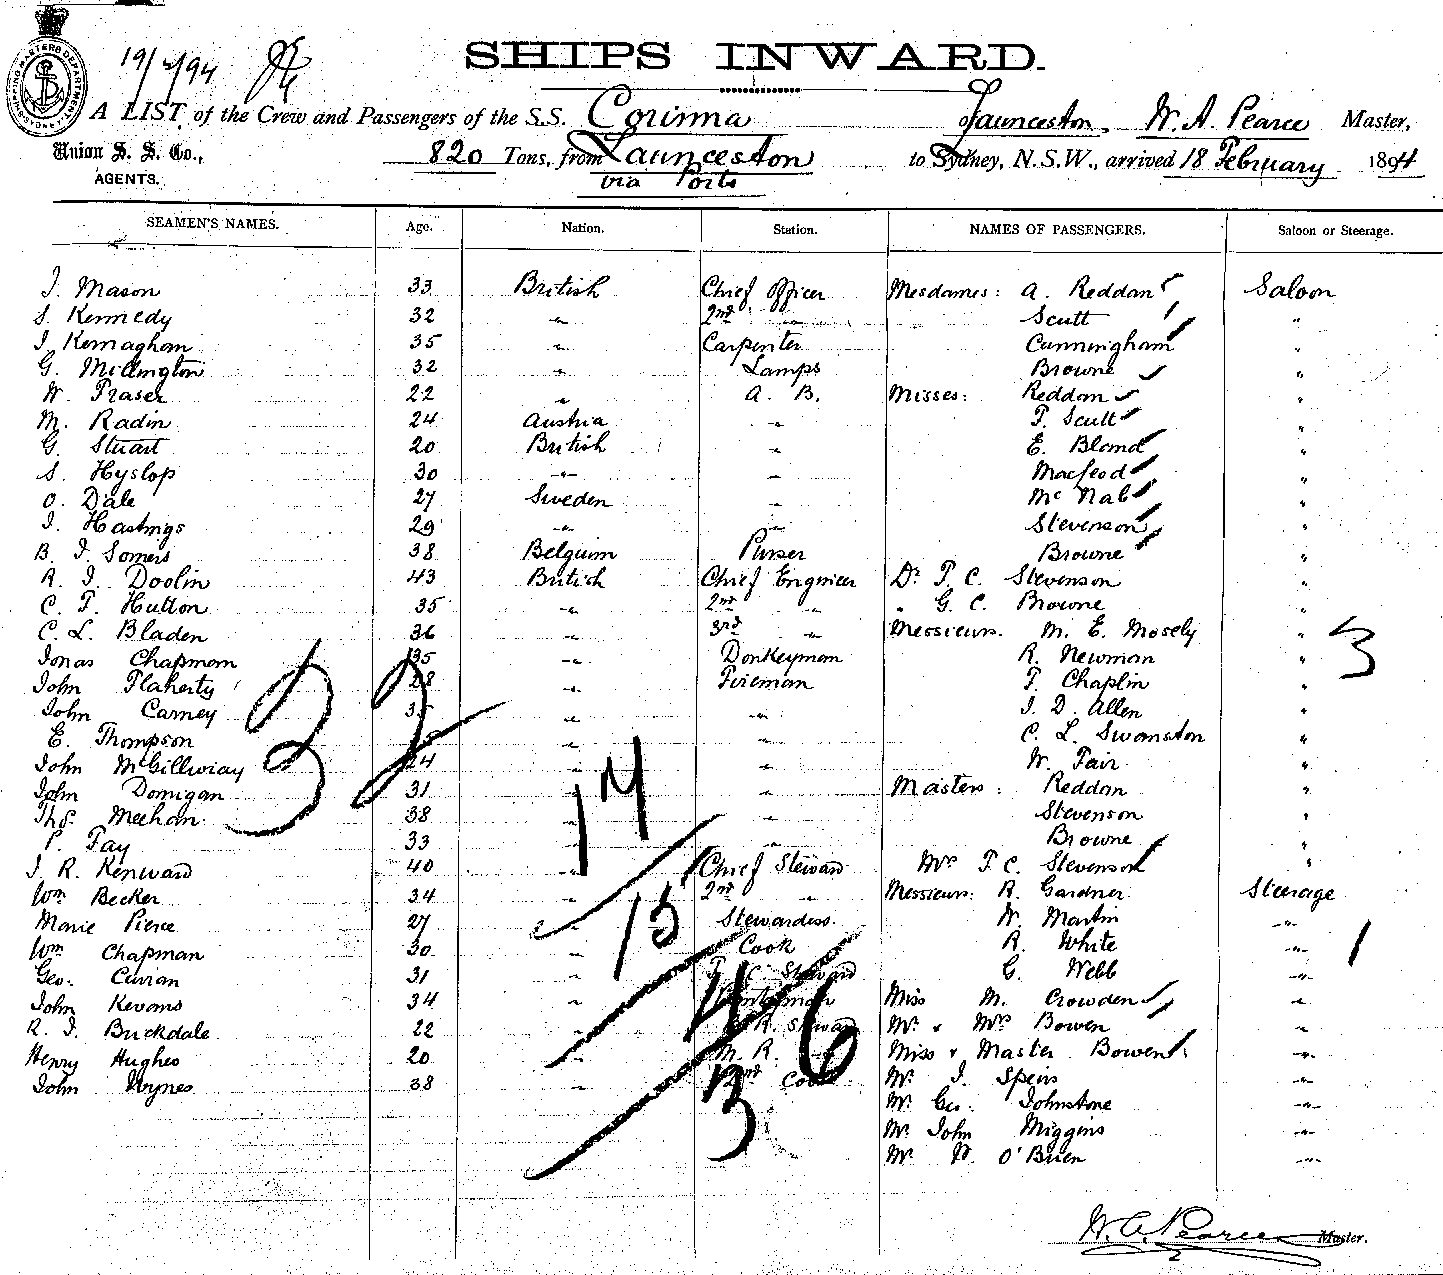 19/2/94
SHIPS INWARD.
A LIST of the Crew and Passengers of the S.S. Corinna of Launceston, W. A. Pearce Master,
Union S. S. Co., 820 Tons, from Launceston to Sydney, N.S.W., arrived 18 February 1894
AGENTS. via Ports
SEAMEN'S NAMES. Age. Nation. Station. NAMES OF PASSENGERS. Saloon or Steerage.
J. Mason 33 British Chief Officer Mesdames: A. Reddan Saloon
S. Kennedy 32 " 2nd " Scutt "
J. Kernaghan 35 " Carpenter Cunningham "
G. Millington 32 " Lamps Browne "
W. Fraser 22 " A. B. Misses: Reddan "
M. Radin 24 Austria " F. Scutt "
G. Stuart 20 British " E. Bland "
S. Hyslop 30 " " Macleod "
O. Dale 27 Sweden " McNab "
J. Hastings 29 " " Stevenson "
B. J. Somers 38 Belgium Purser Browne "
R. J. Doolin 43 British Chief Engineer Dr. F. C. Stevenson "
C. F. Hutton 35 " 2nd " " G. C. Browne "
C. L. Bladen 36 " 3rd " Messieurs. M. E. Mosely " 3
Jonas Chapman 35 " Donkeyman R. Newman "
John Flaherty 28 " Fireman F. Chaplin "
John Carney 35 " " J. D. Allen "
32
E. Thompson " " C. L. Swanston "
John McGillwiay 24 " " W. Fair "
John Donigan 31 " " Masters: Reddan "
17
Thos. Meehan 38 " " Stevenson "
P. Fay 33 " " Browne "
J. R. Kenward 40 " Chief Steward Mrs F. C. Stevenson "
Wm Becker 34 " 2nd " Messieurs: R. Gardner Steerage
15
Marie Pierce 27 " Stewardess W. Martin "
Wm Chapman 30 " Cook R. White " 1
Geo. Curran 31 " F. C. Steward C. Webb "
John Kevans 34 " Miss M. Crowden "
4 6
R. J. Buckdale 22 " R. Steward Mr. & Mrs Bowen "
Henry Hughes 20 " M. R. " Miss & Master Bowen "
John 38 " 2nd Cook Mr. J. Speirs "
3
Mr. Geo. Johnstone "
Mr. John Miggins "
Mr. P. O'Brien "
W. A. Pearce Master.